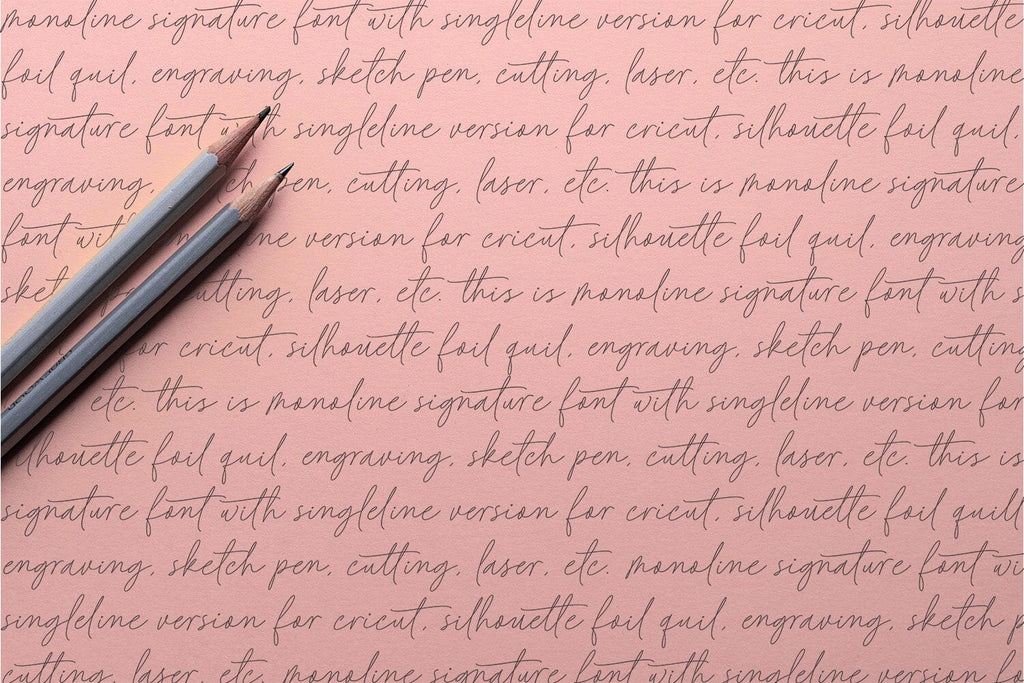 monoline signature font with singleline version for cricut, silhouette
foil quil, engraving, sketch pen, cutting, laser, etc. this is monoline
signature font with singleline version for cricut, silhouette foil quil,
engraving, sketch pen, cutting, laser, etc. this is monoline signature
font with singleline version for cricut, silhouette foil quil, engraving
cutting, laser, etc. this is monoline signature font with s
for cricut, silhouette foil quil, engraving, sketch pen, cutting
etc. this is monoline signature font with singleline version for
silhouette foil quil, engraving, sketch pen, cutting, laser, etc. this is
signature font with singleline version for cricut, silhouette foil quill
engraving, sketch pen, cutting, laser, etc. monoline signature font wi
singleline version for cricut, silhouette foil quil, engraving, sketch p
cutting, laser, etc. monoline signature font with singleline version fo